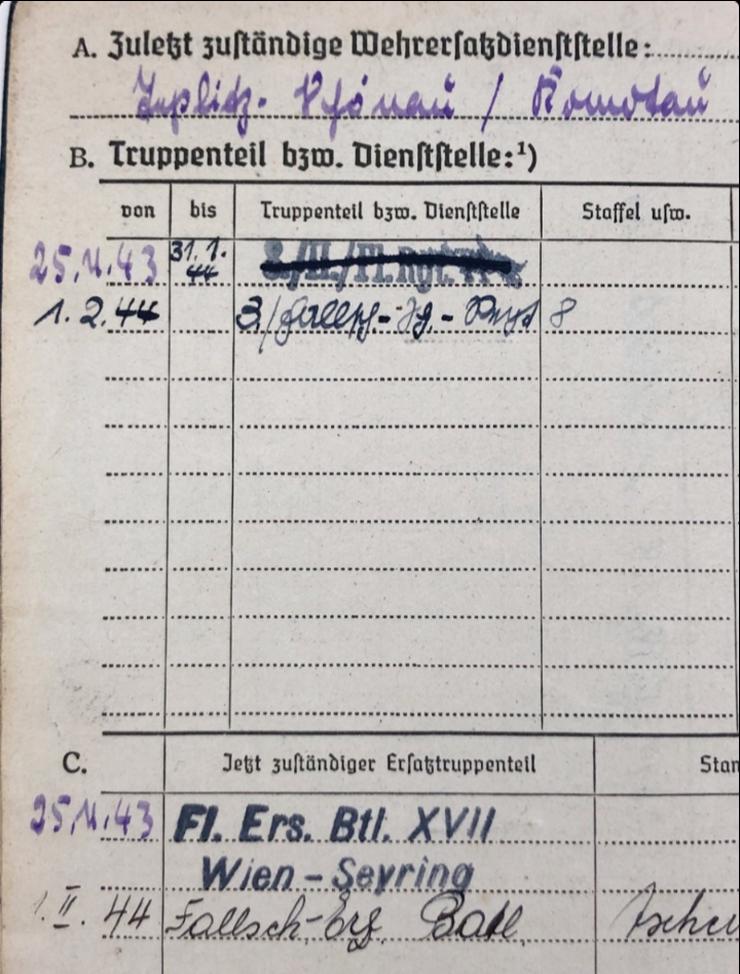 A. Zuletzt zuständige Wehrersatzdienststelle:
Teplitz-Schönau / Komotau
B. Truppenteil bzw. Dienststelle:¹)
von bis Truppenteil bzw. Dienststelle Staffel usw.
25.11.43 31.1.44 /II./Fl. Rgt.
1.2.44 3/Fallsch-Jg.-Regt 8
C. Jetzt zuständiger Ersatztruppenteil Stan
25.11.43 Fl. Ers. Btl. XVII
Wien-Seyring
1.II.44 Fallsch-Ers. Batl.